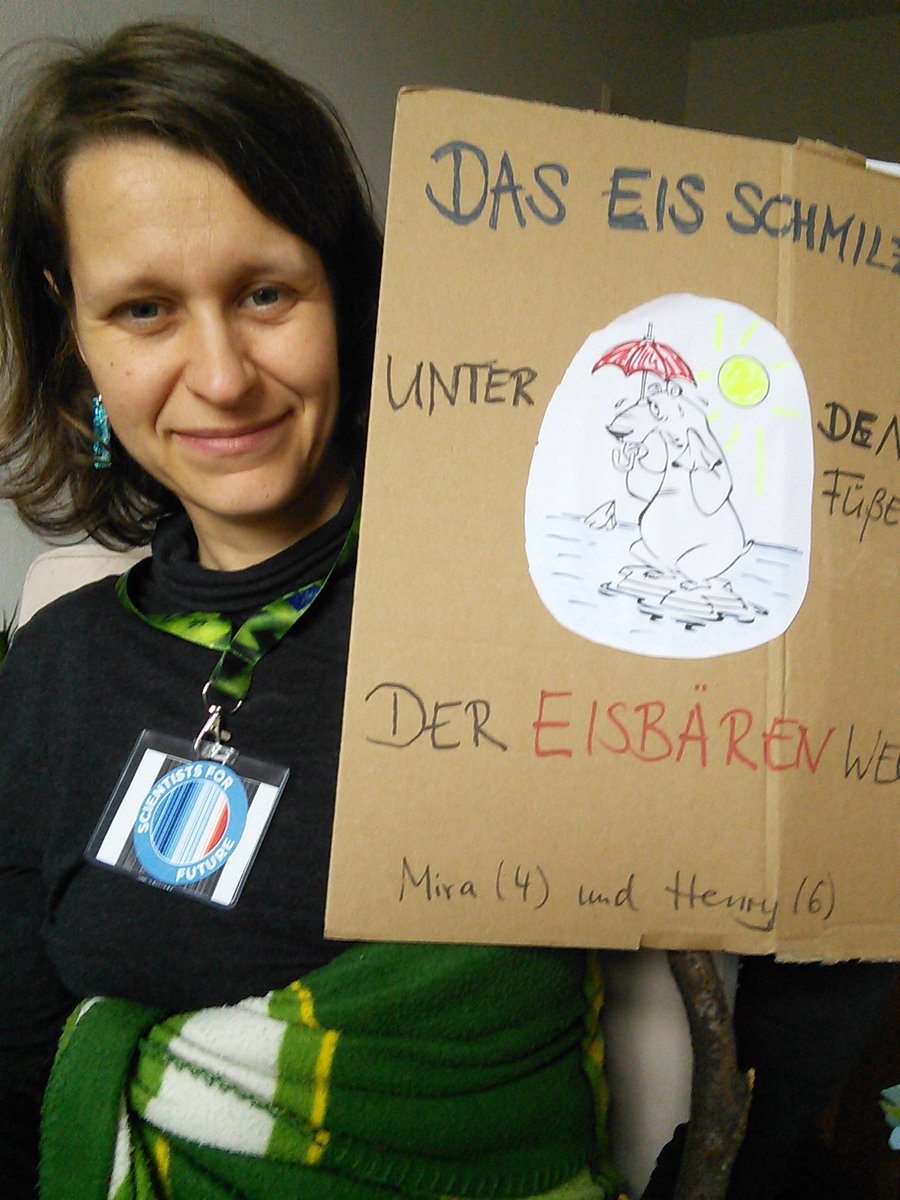 DAS EIS SCHMILZ
UNTER
DEN
FÜßE
DER EISBÄREN WE
Mira (4) und Henry (6)
SCIENTISTS FOR
FUTURE